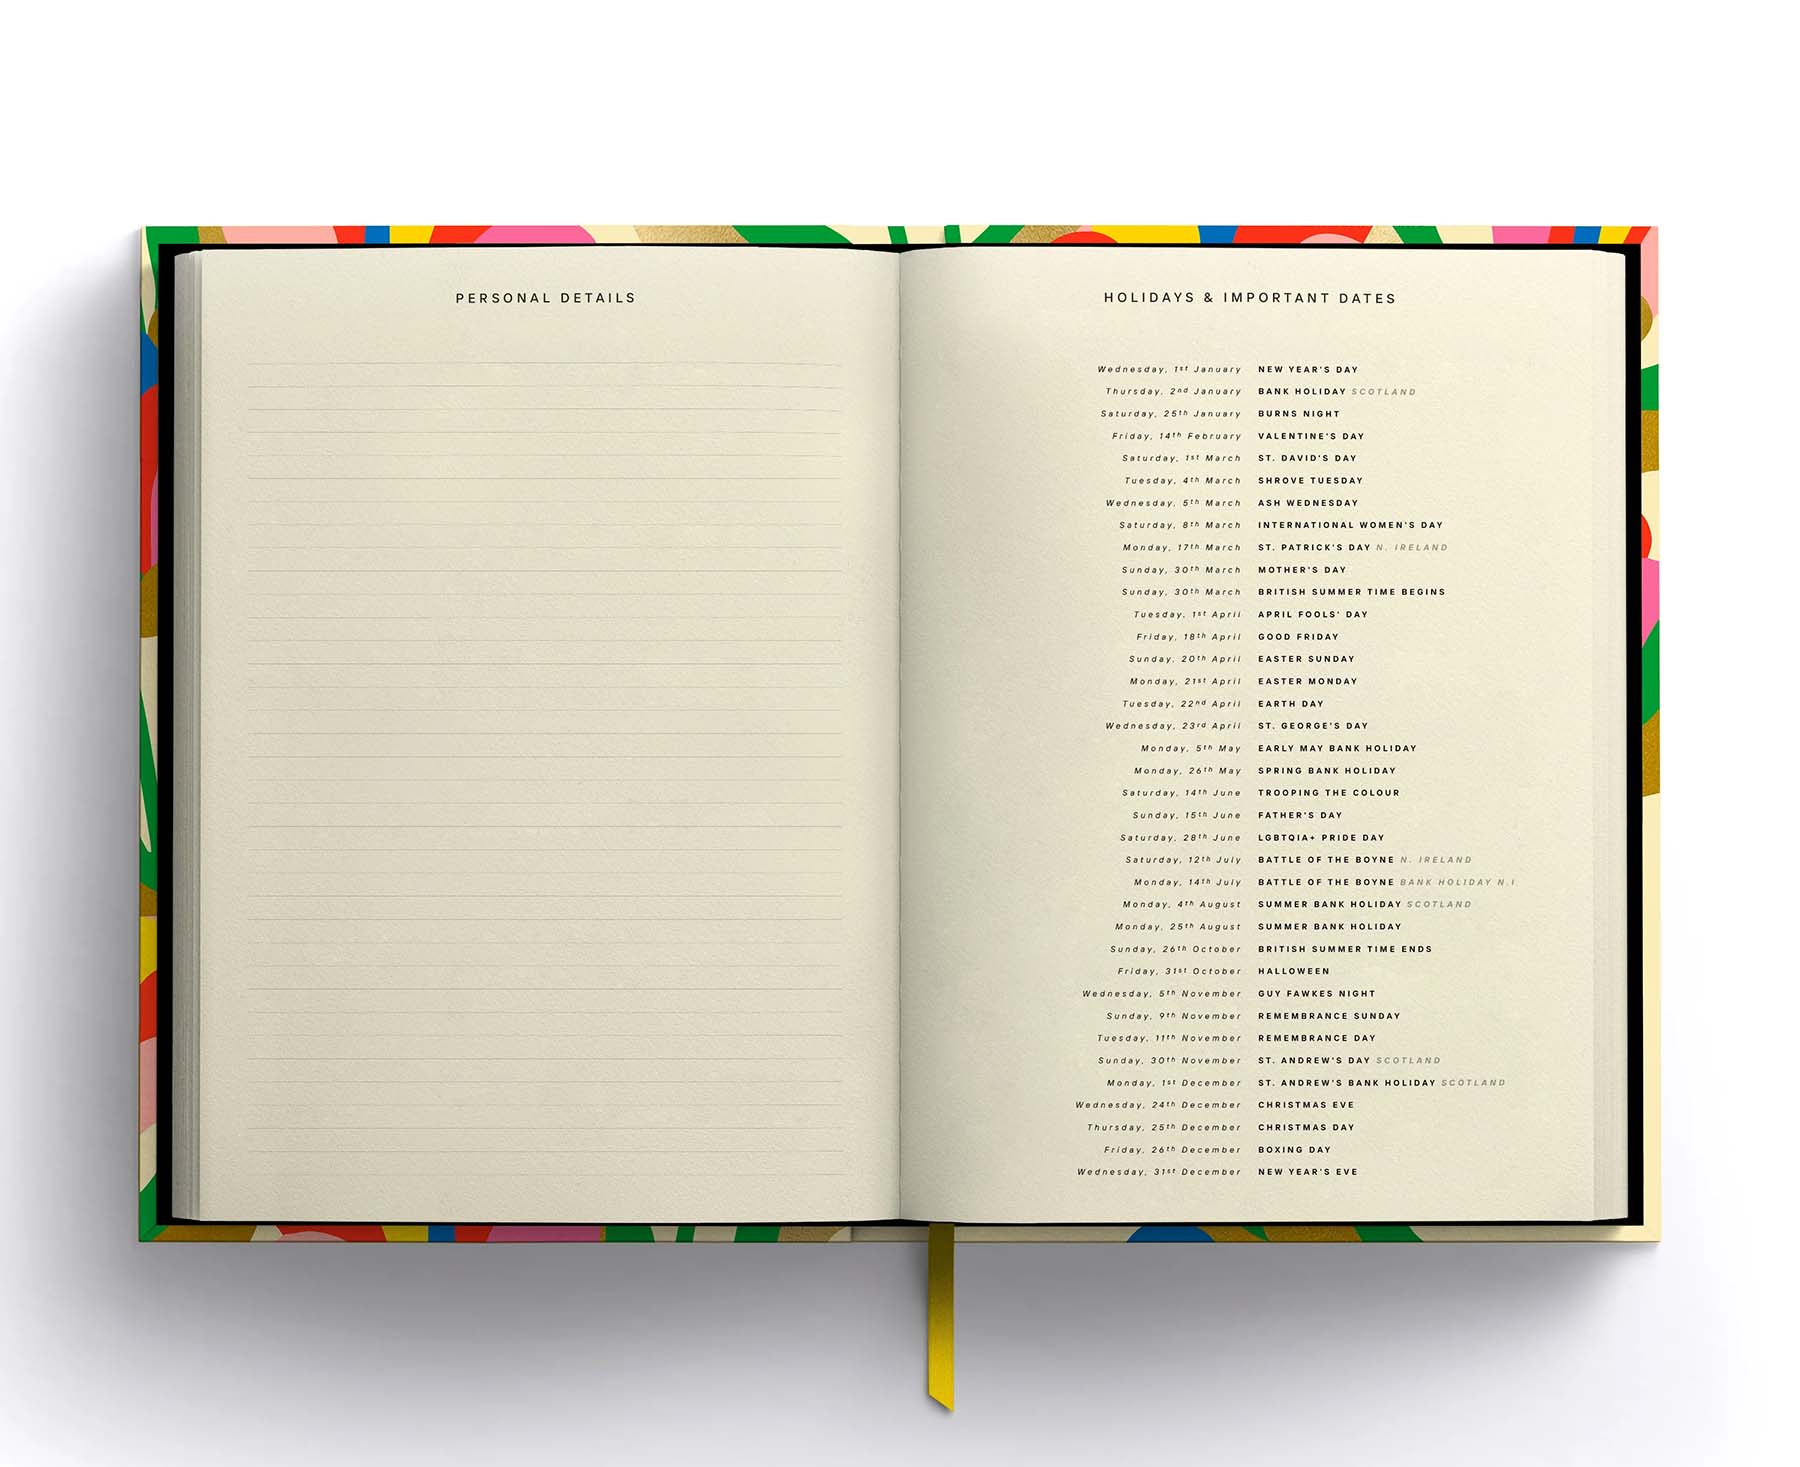 PERSONAL DETAILS
HOLIDAYS & IMPORTANT DATES
Wednesday, 1st January NEW YEAR'S DAY
Thursday, 2nd January BANK HOLIDAY SCOTLAND
Saturday, 25th January BURNS NIGHT
Friday, 14th February VALENTINE'S DAY
Saturday, 1st March ST. DAVID'S DAY
Tuesday, 4th March SHROVE TUESDAY
Wednesday, 5th March ASH WEDNESDAY
Saturday, 8th March INTERNATIONAL WOMEN'S DAY
Monday, 17th March ST. PATRICK'S DAY N. IRELAND
Sunday, 30th March MOTHER'S DAY
Sunday, 30th March BRITISH SUMMER TIME BEGINS
Tuesday, 1st April APRIL FOOLS' DAY
Friday, 18th April GOOD FRIDAY
Sunday, 20th April EASTER SUNDAY
Monday, 21st April EASTER MONDAY
Tuesday, 22nd April EARTH DAY
Wednesday, 23rd April ST. GEORGE'S DAY
Monday, 5th May EARLY MAY BANK HOLIDAY
Monday, 26th May SPRING BANK HOLIDAY
Saturday, 14th June TROOPING THE COLOUR
Sunday, 15th June FATHER'S DAY
Saturday, 28th June LGBTQIA+ PRIDE DAY
Saturday, 12th July BATTLE OF THE BOYNE N. IRELAND
Monday, 14th July BATTLE OF THE BOYNE BANK HOLIDAY N.I.
Monday, 4th August SUMMER BANK HOLIDAY SCOTLAND
Monday, 25th August SUMMER BANK HOLIDAY
Sunday, 26th October BRITISH SUMMER TIME ENDS
Friday, 31st October HALLOWEEN
Wednesday, 5th November GUY FAWKES NIGHT
Sunday, 9th November REMEMBRANCE SUNDAY
Tuesday, 11th November REMEMBRANCE DAY
Sunday, 30th November ST. ANDREW'S DAY SCOTLAND
Monday, 1st December ST. ANDREW'S BANK HOLIDAY SCOTLAND
Wednesday, 24th December CHRISTMAS EVE
Thursday, 25th December CHRISTMAS DAY
Friday, 26th December BOXING DAY
Wednesday, 31st December NEW YEAR'S EVE